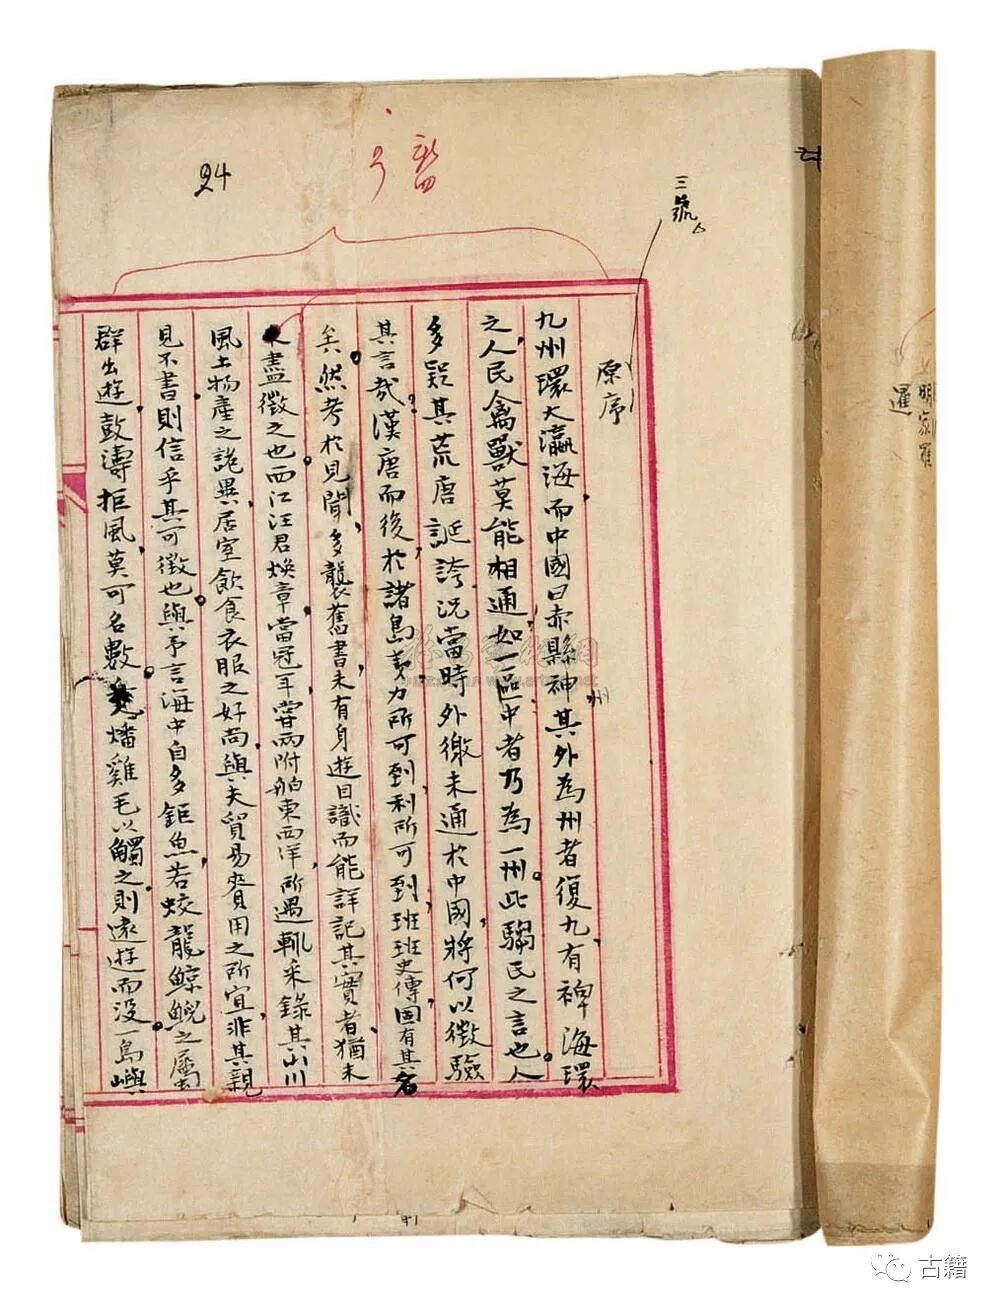 24
三號
原序
九州環大瀛海,而中國曰赤縣神州其外為州者復九,有裨海環
之人民禽獸莫能相通,如一區中者乃為一州。此騶氏之言也。人
多疑其荒唐誕誇況當時外徼未通於中國,將何以徵驗
其言哉。漢唐而後,於諸島夷,力所可到,利所可到,班班史傳,固有其名
矣。然考於見聞,多襲舊書未有身遊目識而能詳記其實者,猶未
盡徵之也。而江汪君煥章當冠年,嘗兩附舶東西洋,所過輒采錄其山川
風土物產之詭異,居室飲食衣服之好尚,與夫貿易賚用之所宜,非其親
見不書,則信乎其可徵也。與予言海中自多鉅魚,若蛟龍鯨鯢之屬
群出遊,鼓濤拒風,莫可名數。燔雞毛以觸之,則遠遊而沒。一島嶼
古籍